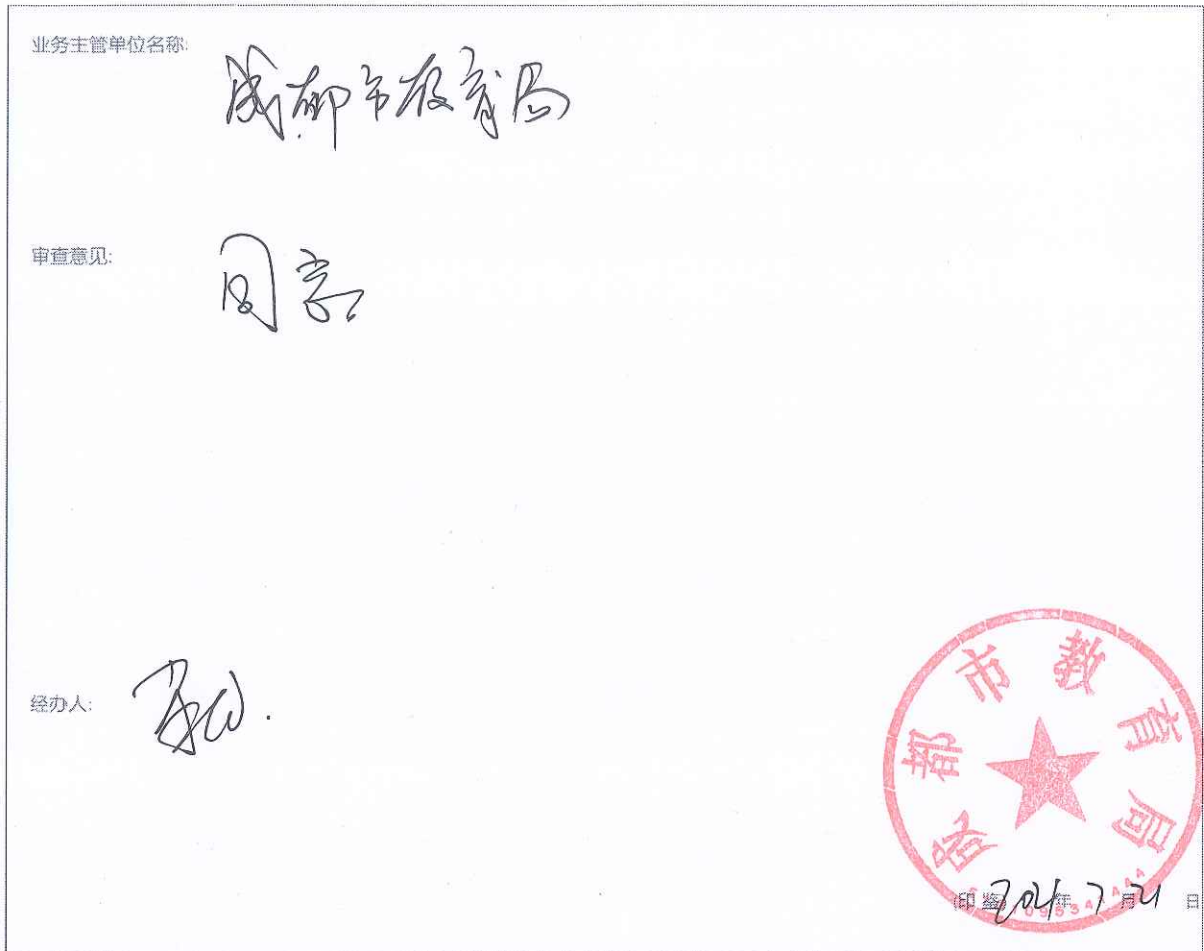 业务主管单位名称:
成都市教育局
审查意见:
同意
经办人:
成都市教育局
(印 鉴) 2021年 7 月 21 日